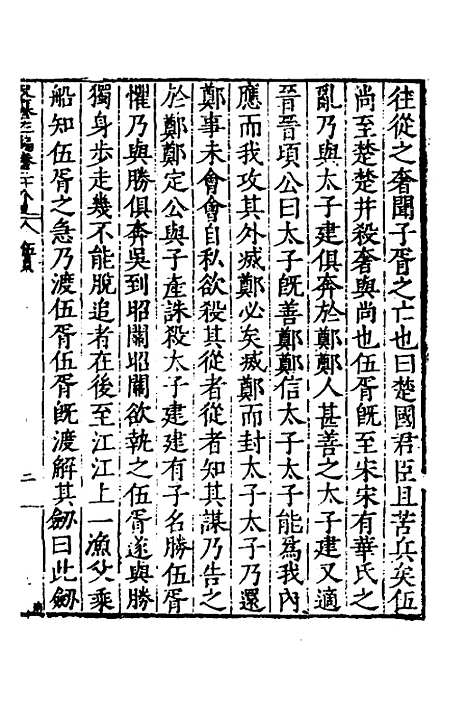 往從之奢聞子胥之亡也曰楚國君臣且苦兵矣伍
尚至楚楚并殺奢與尚也伍胥旣至宋宋有華氏之
亂乃與太子建俱奔於鄭鄭人甚善之太子建又適
晉晉頃公曰太子旣善鄭鄭信太子太子能爲我內
應而我攻其外滅鄭必矣滅鄭而封太子太子乃還
鄭事未會會自私欲殺其從者從者知其謀乃告之
於鄭鄭定公與子產誅殺太子建建有子名勝伍胥
懼乃與勝俱奔吳到昭關昭關欲執之伍胥遂與勝
獨身步走幾不能脫追者在後至江江上一漁父乘
船知伍胥之急乃渡伍胥伍胥旣渡解其劒曰此劒
二